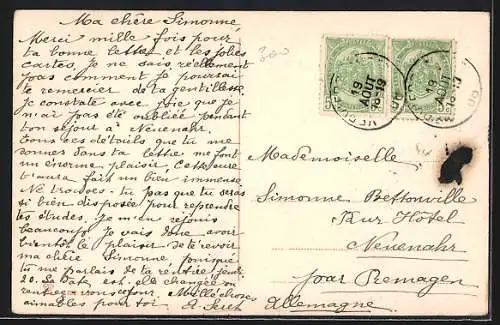 Ma chère Simonne
Merci mille fois pour
ta bonne lettre et les jolies
cartes, je ne sais réellement
pas comment je pourrais
te remercier de ta gentillesse.
Je constate avec joie que je
n'ai pas été oubliée pendant
ton séjour à Neuenahr.
Tous ces détails que tu me
donnes dans ta lettre me font
un énorme plaisir. Cette cure
t'aura fait un bien immense.
Ne trouves-tu pas que tu seras
si bien disposée pour reprendre
tes études. Je m'en réjouis
beaucoup. Je vais donc avoir
bientôt le plaisir de te revoir
ma chère Simonne
tu me parlais de ta rentrée jeudi
20. La date est-elle changée ou
rentrez-vous Mille choses
aimables pour toi.
300
19
AOUT
19
AOUT
Mademoiselle
Simonne Bettonville
Kur Hôtel
Neuenahr
par Remagen
Allemagne.